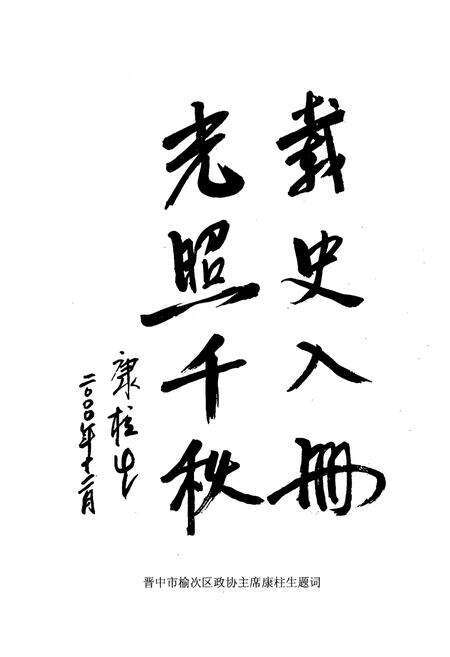 载史入册
光照千秋
康柱生
二〇〇〇年十二月
晋中市榆次区政协主席康柱生题词